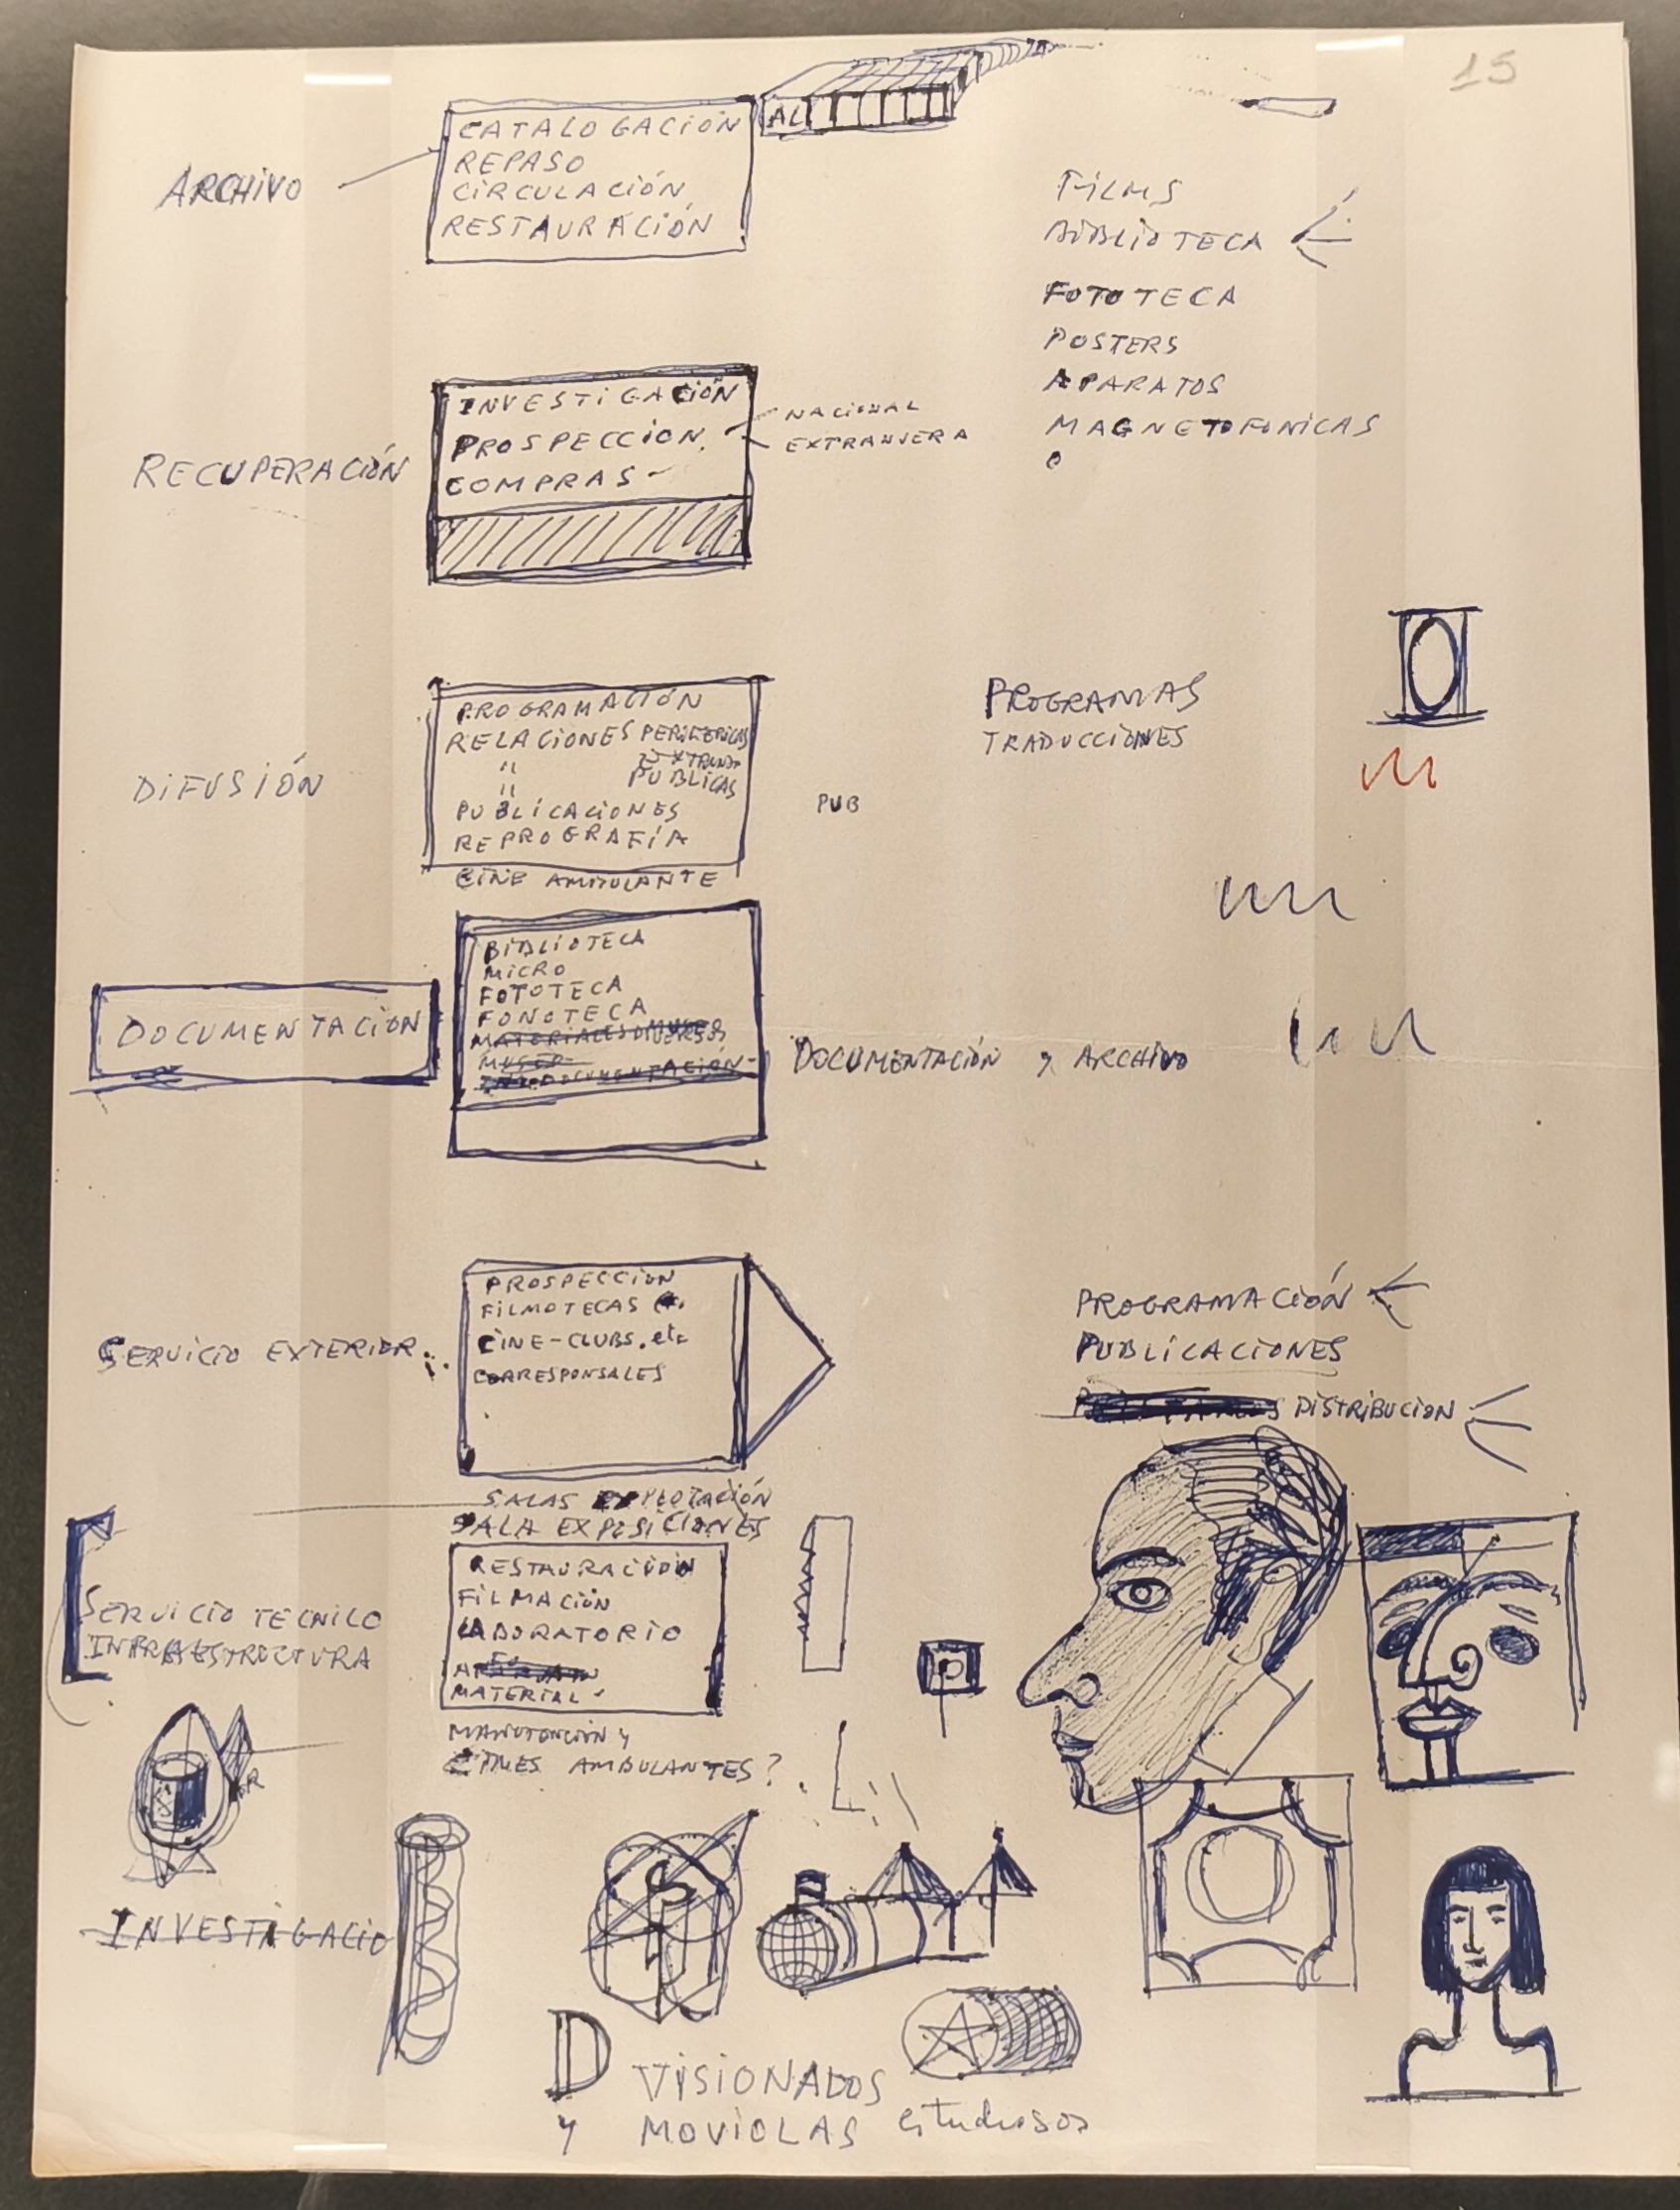 15
AL
ARCHIVO
CATALOGACIÓN
REPASO
CIRCULACIÓN
RESTAURACIÓN
FILMS
BIBLIOTECA
FOTOTECA
POSTERS
APARATOS
MAGNETOFONICAS
RECUPERACIÓN
INVESTIGACIÓN
PROSPECCION
COMPRAS
NACIONAL
EXTRANJERA
DIFUSIÓN
PROGRAMACIÓN
RELACIONES PERIFERICAS
" 
" PUBLICAS
PUBLICACIONES
REPROGRAFÍA
CINE AMBULANTE
PUB
PROGRAMAS
TRADUCCIONES
DOCUMENTACION
BIBLIOTECA
MICRO
FOTOTECA
FONOTECA
MATERIALES DIVERSOS
MUSEO
DOCUMENTACIÓN
DOCUMENTACIÓN y ARCHIVO
SERVICIO EXTERIOR
PROSPECCION
FILMOTECAS
CINE-CLUBS. etc
CORRESPONSALES
PROGRAMACIÓN
PUBLICACIONES
DISTRIBUCION
SALAS EXPLOTACIÓN
SALA EXPOSICIONES
SERVICIO TECNICO
INFRAESTRUCTURA
RESTAURACION
FILMACIÓN
LABORATORIO
MATERIAL
MANUTENCIÓN y
CINES AMBULANTES?
INVESTIGACIO
D VISIONADOS
y MOVIOLAS estudiosos